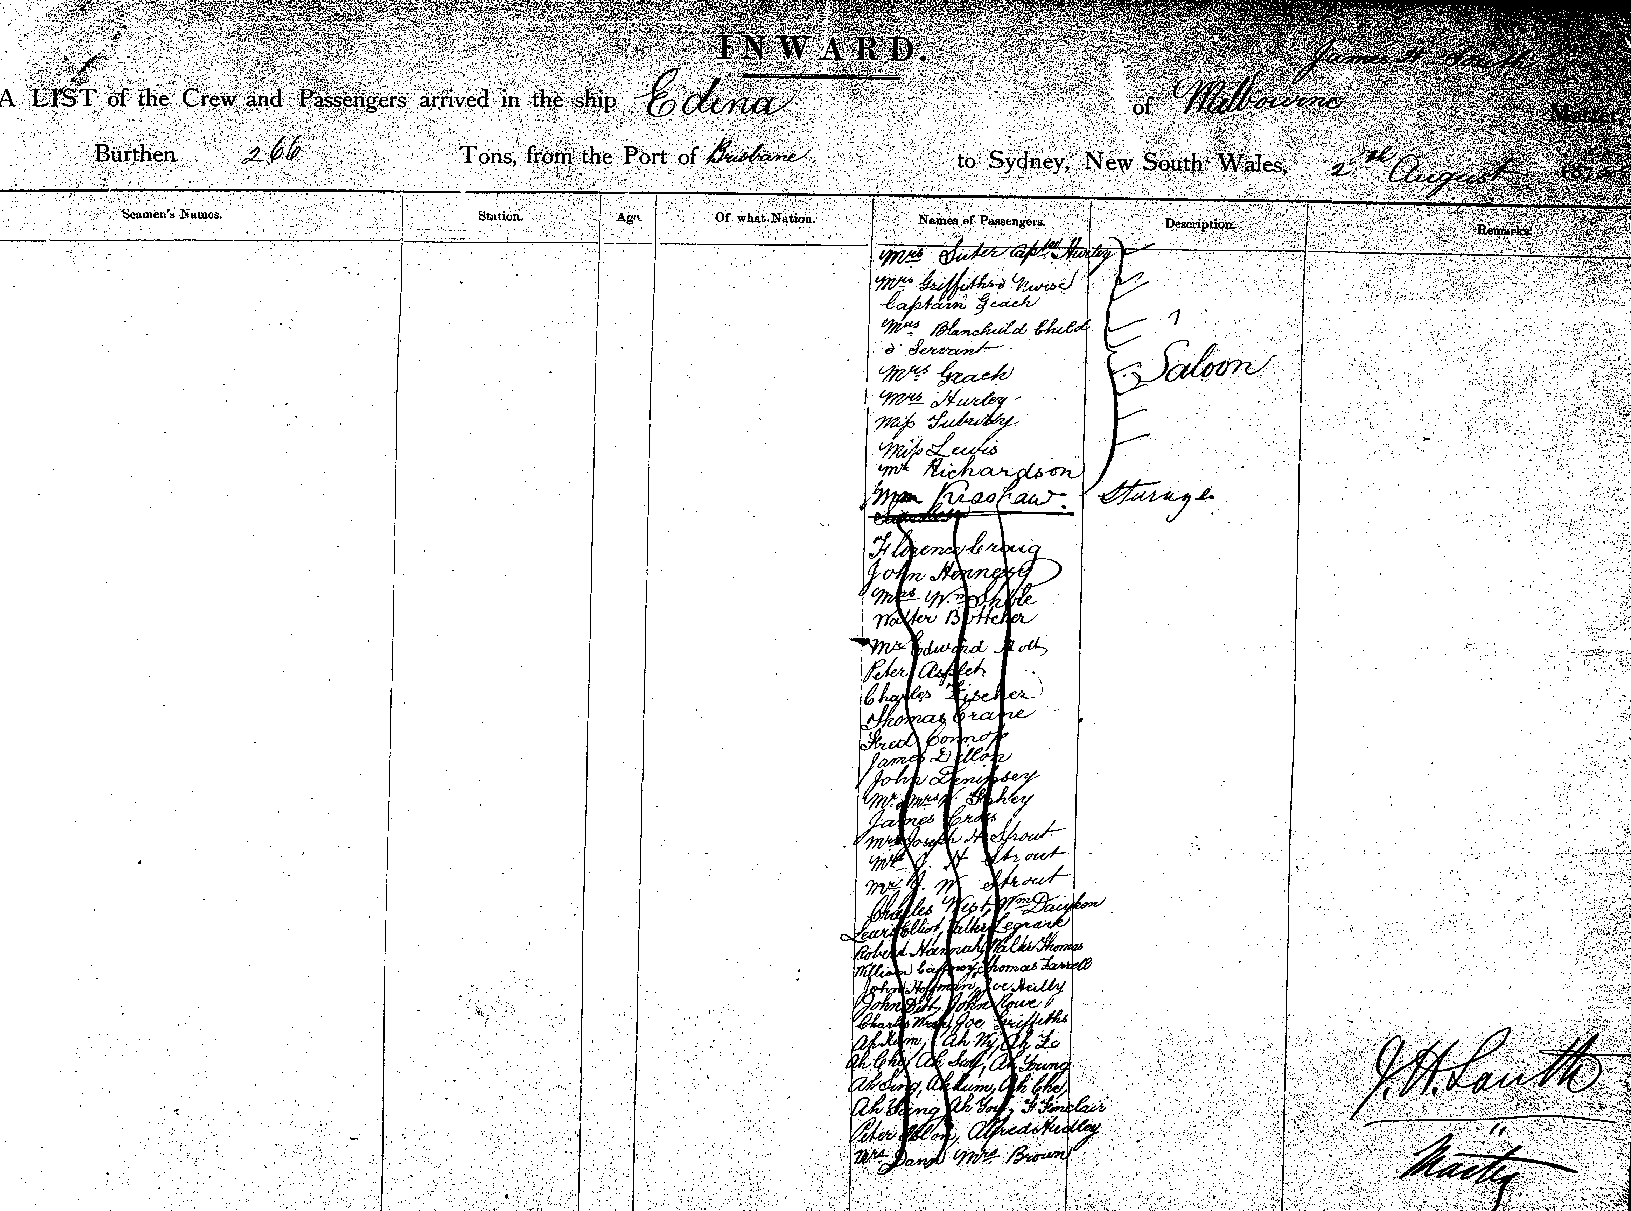 INWARD.
A LIST of the Crew and Passengers arrived in the ship Edina of Melbourne
Burthen 266 Tons, from the Port of Brisbane to Sydney, New South Wales, 2nd August
Seamen's Names. Station. Age. Of what Nation. Names of Passengers. Description. Remarks.
Mrs Suter Captn Hurley
Mrs Griffiths & Nurse
Captain Geach
Mrs Blanchuld Child
& Servant
Saloon
Mrs Geach
Mrs Hurley
Miss
Miss Lewis
Mr Richardson
Kiashaw. Sturage.
Florence Craig
John Hennery
Mrs Wm
Walter Buttcher
Mr Edward Holt
Peter
Charles Fischer
Thomas Crane
Fred Connor
James Dillon
John Dempsey
Mr Mrs Fahey
James Cross
Joseph H Sprout
J. H Strout
Mr J. W Strout
Charles West, Wm
Elliot, Legrand
Robert Hannah, Walter Thomas
William Caffrey, Thomas Farrell
John Hoffman, Joe Heally
John John Rowe
Charles Joe Griffiths
Ah Kum, Ah Wy, Ah Lo
Ah Che, Ah Ah Young
Ah Sing, Ah Kum, Ah Che,
Ah Ah You, F Sinclair
Peter Alfred Hedley
Mrs Dann Mrs Brown
J. H. South
Master